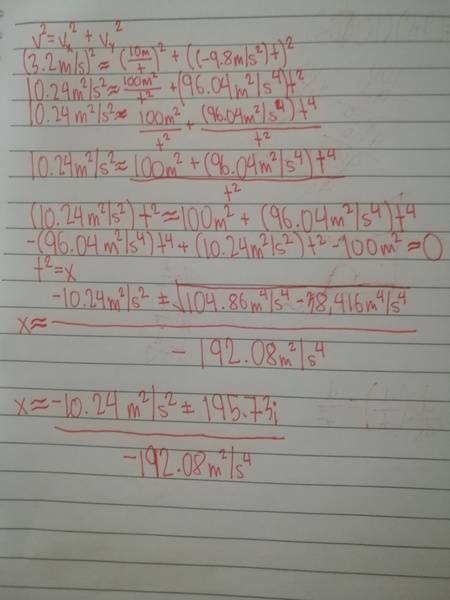 v² = vₓ² + vᵧ²
(3.2m/s)² ≈ (10m/t)² + ((-9.8m/s²)t)²
10.24m²/s² ≈ 100m²/t² + (96.04m²/s⁴)t²
10.24m²/s² ≈ 100m²/t² + (96.04m²/s⁴)t⁴/t²
10.24m²/s² ≈ 100m² + (96.04m²/s⁴)t⁴/t²
(10.24m²/s²)t² ≈ 100m² + (96.04m²/s⁴)t⁴
-(96.04m²/s⁴)t⁴ + (10.24m²/s²)t² - 100m² ≈ 0
t² = x
x ≈ -10.24m²/s² ± √104.86m⁴/s⁴ - 38,416m⁴/s⁴ / -192.08m²/s⁴
x ≈ -10.24m²/s² ± 195.73i / -192.08m²/s⁴